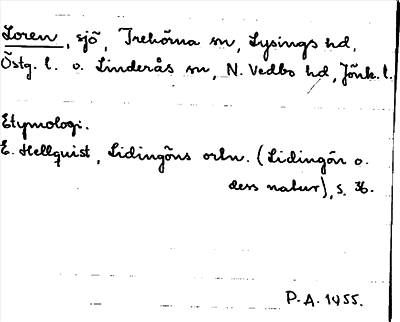 Loren, sjö, Trehörna sn, Lysings hd,
Östg. l. o. Linderås sn, N. Vedbo hd, Jönk. l.
Etymologi.
E. Hellquist, Lidingöns ortn. (Lidingön o.
dess natur), s. 36.
P.A. 1455.